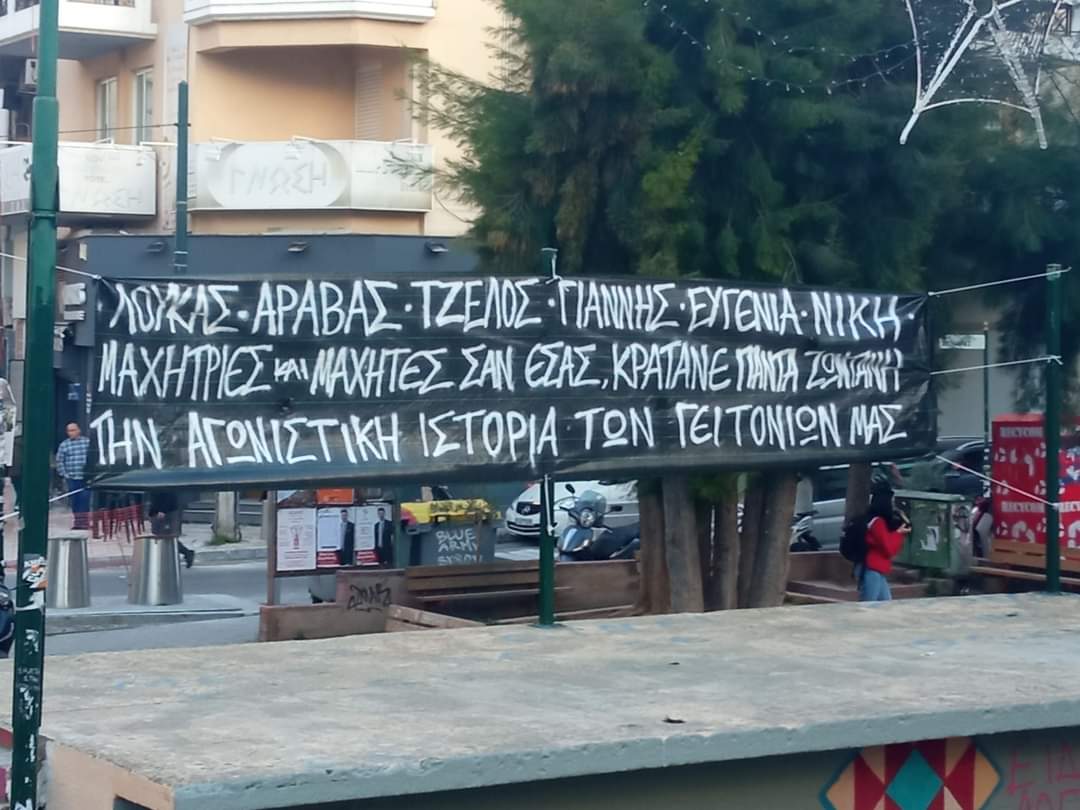 ·ΛΟΥΚΑΣ·ΑΡΑΒΑΣ·ΤΖΕΛΟΣ·ΓΙΑΝΝΗΣ·ΕΥΓΕΝΙΑ·ΝΙΚΗ·
ΜΑΧΗΤΡΙΕΣ και ΜΑΧΗΤΕΣ ΣΑΝ ΕΣΑΣ, ΚΡΑΤΑΝΕ ΠΑΝΤΑ ΖΩΝΤΑΝΗ
ΤΗΝ ΑΓΩΝΙΣΤΙΚΗ ΙΣΤΟΡΙΑ ΤΩΝ ΓΕΙΤΟΝΙΩΝ ΜΑΣ
BLUE
ARMY